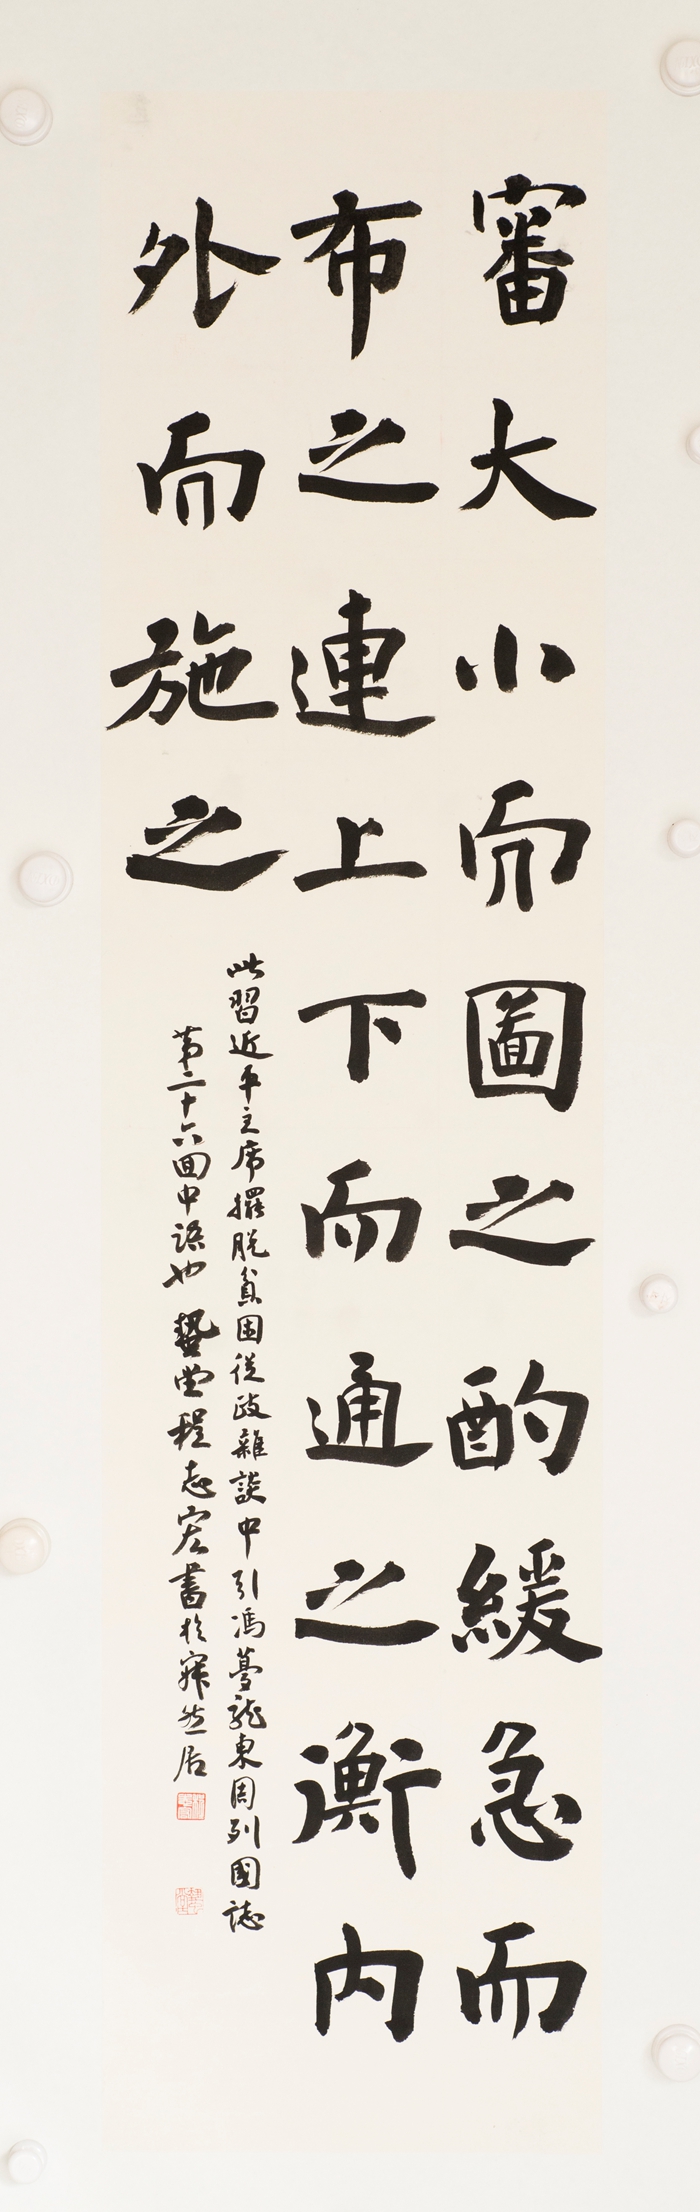 審大小而圖之酌緩急而
布之連上下而通之衡内
外而施之
此習近平主席擺脱貧困從政雜談中引馮夢龍東周列國誌
第二十六回中語也 藝豐程志宏書於寂然居